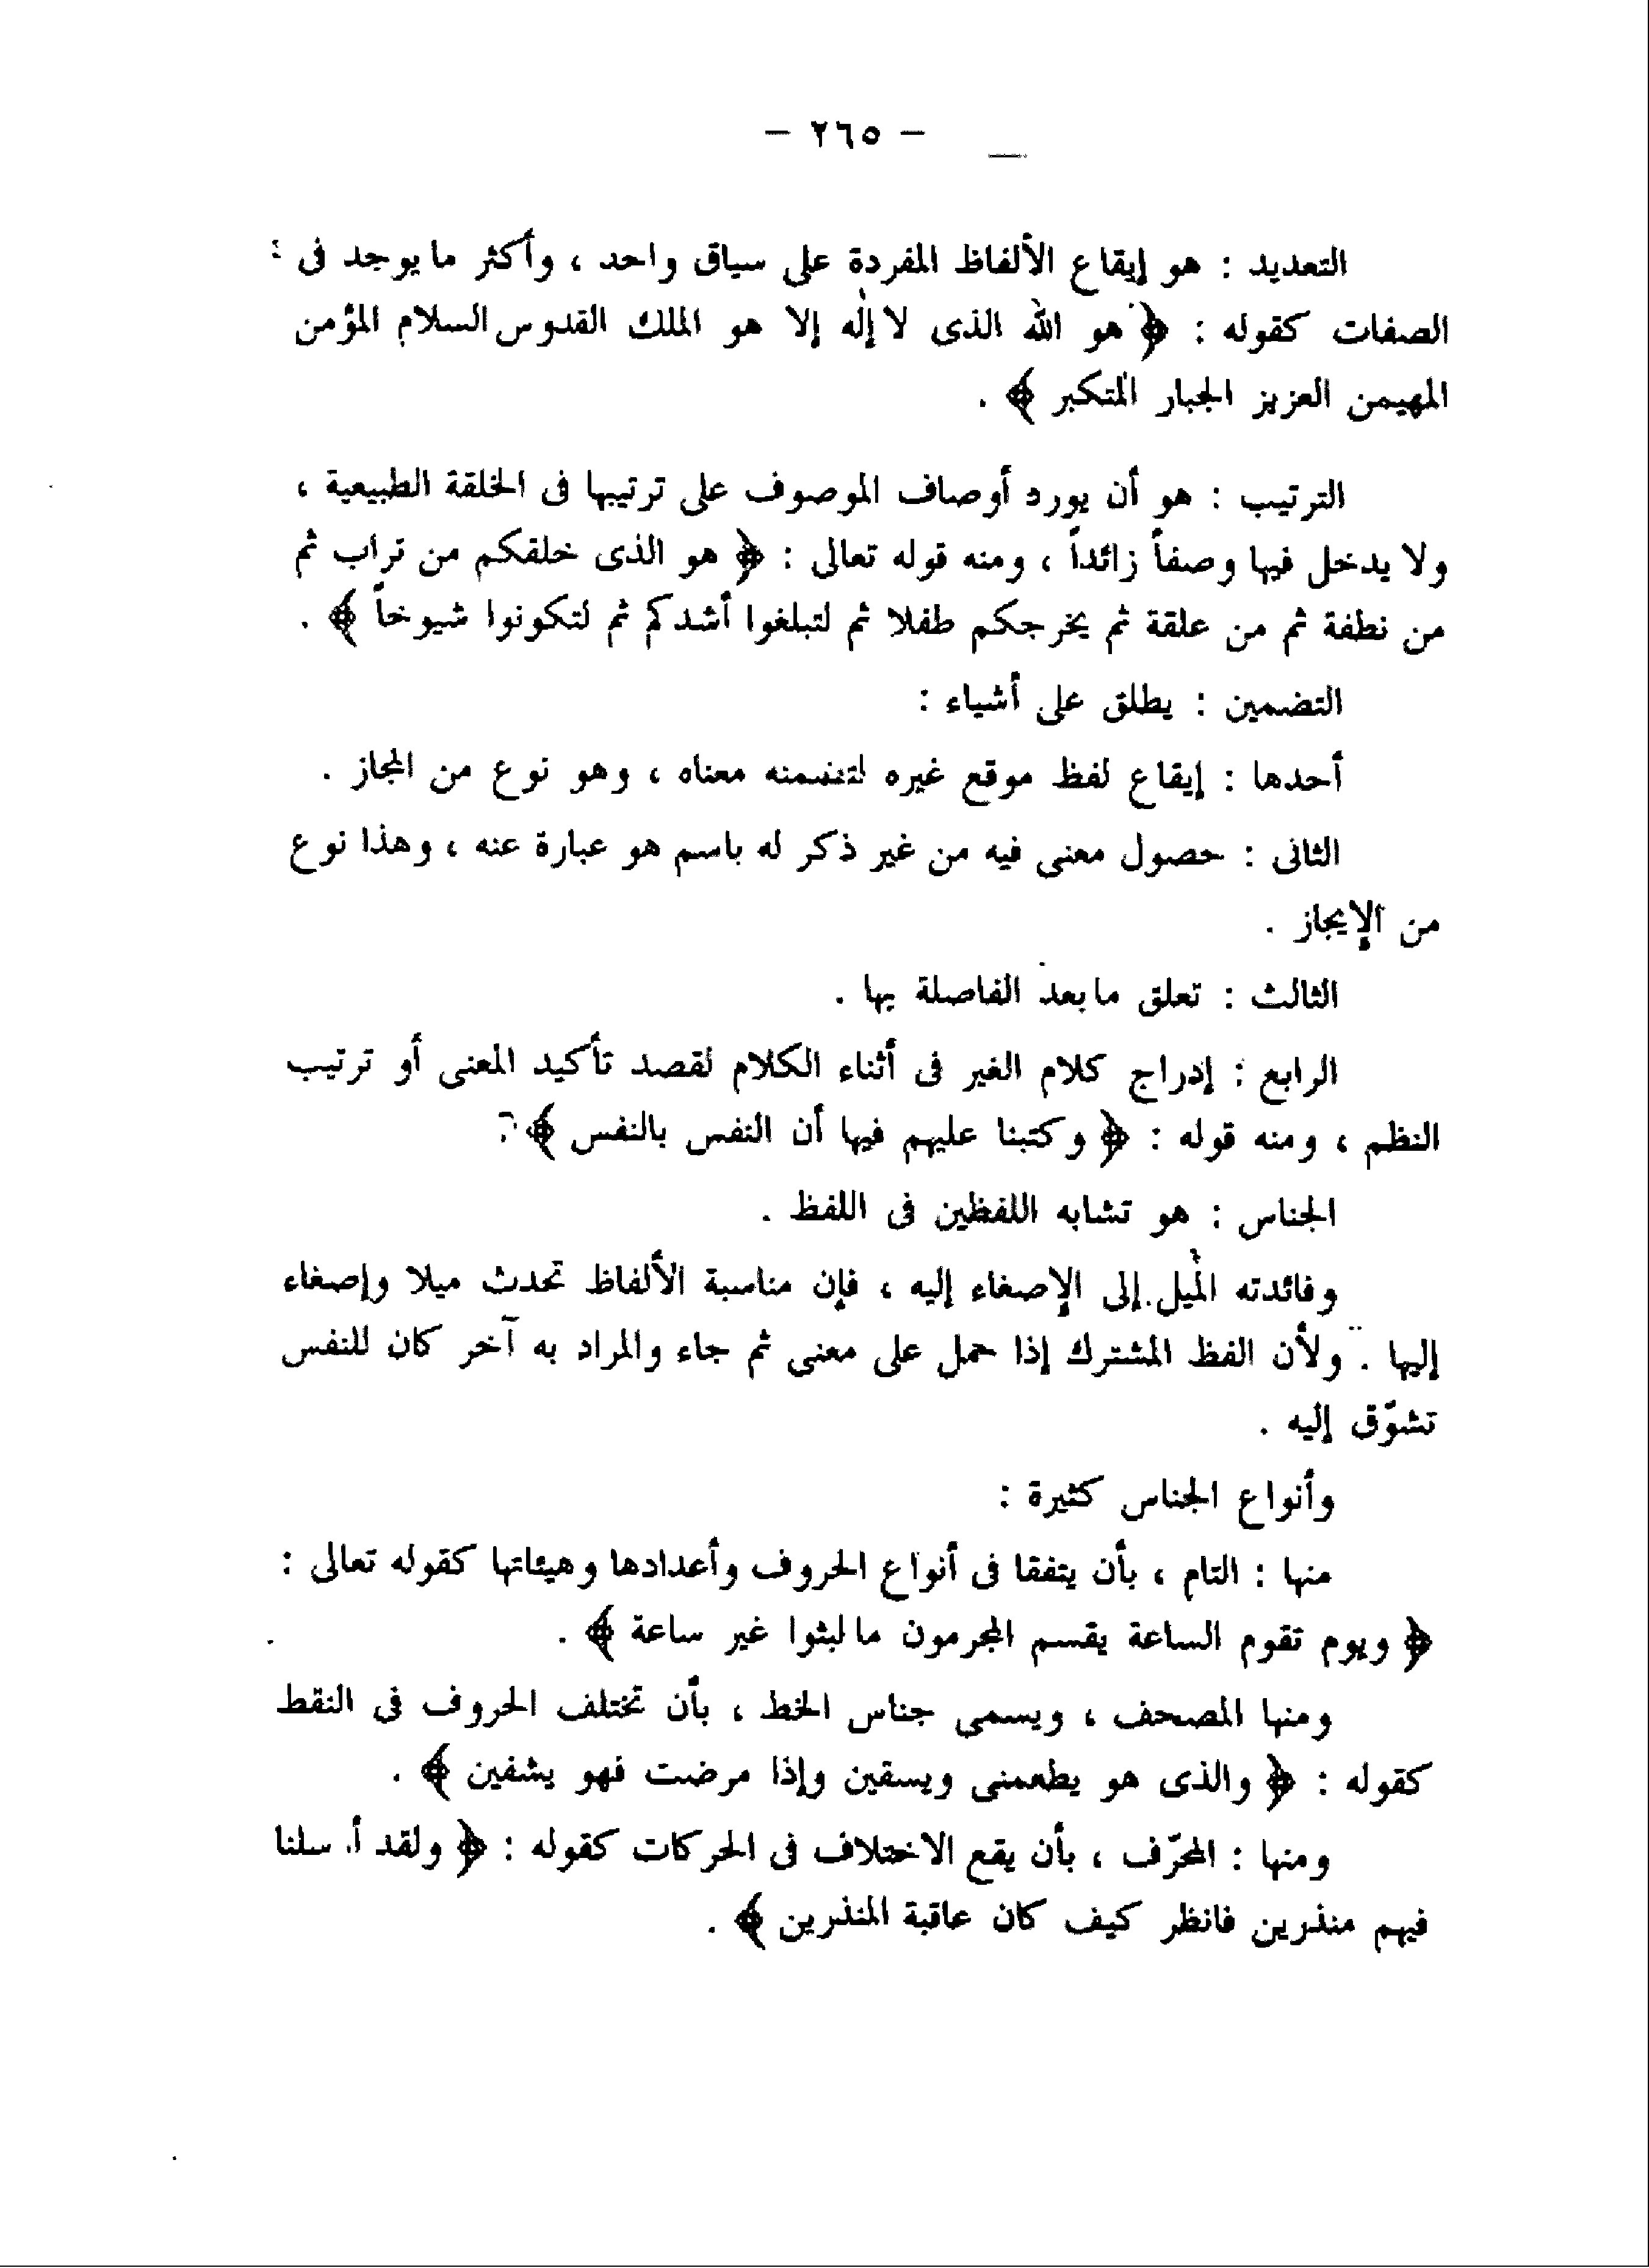 – ٢٦٥ –
التعديد : هو إيقاع الألفاظ المفردة على سياق واحد ، وأكثر ما يوجد فى
الصفات كقوله : ﴿ هو الله الذى لا إله إلا هو الملك القدوس السلام المؤمن
المهيمن العزيز الجبار المتكبر ﴾ .
الترتيب : هو أن يورد أوصاف الموصوف على ترتيبها فى الخلقة الطبيعية ،
ولا يدخل فيها وصفاً زائداً ، ومنه قوله تعالى : ﴿ هو الذى خلقكم من تراب ثم
من نطفة ثم من علقة ثم يخرجكم طفلا ثم لتبلغوا أشدكم ثم لتكونوا شيوخاً ﴾ .
التضمين : يطلق على أشياء :
أحدها : إيقاع لفظ موقع غيره لتضمنه معناه ، وهو نوع من المجاز .
الثانى : حصول معنى فيه من غير ذكر له باسم هو عبارة عنه ، وهذا نوع
من الإيجاز .
الثالث : تعلق ما بعد الفاصلة بها .
الرابع : إدراج كلام الغير فى أثناء الكلام لقصد تأكيد المعنى أو ترتيب
النظم ، ومنه قوله : ﴿ وكتبنا عليهم فيها أن النفس بالنفس ﴾
الجناس : هو تشابه اللفظين فى اللفظ .
وفائدته الميل إلى الإصغاء إليه ، فإن مناسبة الألفاظ تحدث ميلا وإصغاء
إليها . ولأن الفظ المشترك إذا حمل على معنى ثم جاء والمراد به آخر كان للنفس
تشوّق إليه .
وأنواع الجناس كثيرة :
منها : التام ، بأن يتفقا فى أنواع الحروف وأعدادها وهيئاتها كقوله تعالى :
﴿ ويوم تقوم الساعة يقسم المجرمون ما لبثوا غير ساعة ﴾ .
ومنها المصحف ، ويسمى جناس الخط ، بأن تختلف الحروف فى النقط
كقوله : ﴿ والذى هو يطعمنى ويسقين وإذا مرضت فهو يشفين ﴾ .
ومنها : المحرّف ، بأن يقع الاختلاف فى الحركات كقوله : ﴿ ولقد أرسلنا
فيهم منذرين فانظر كيف كان عاقبة المنذرين ﴾ .